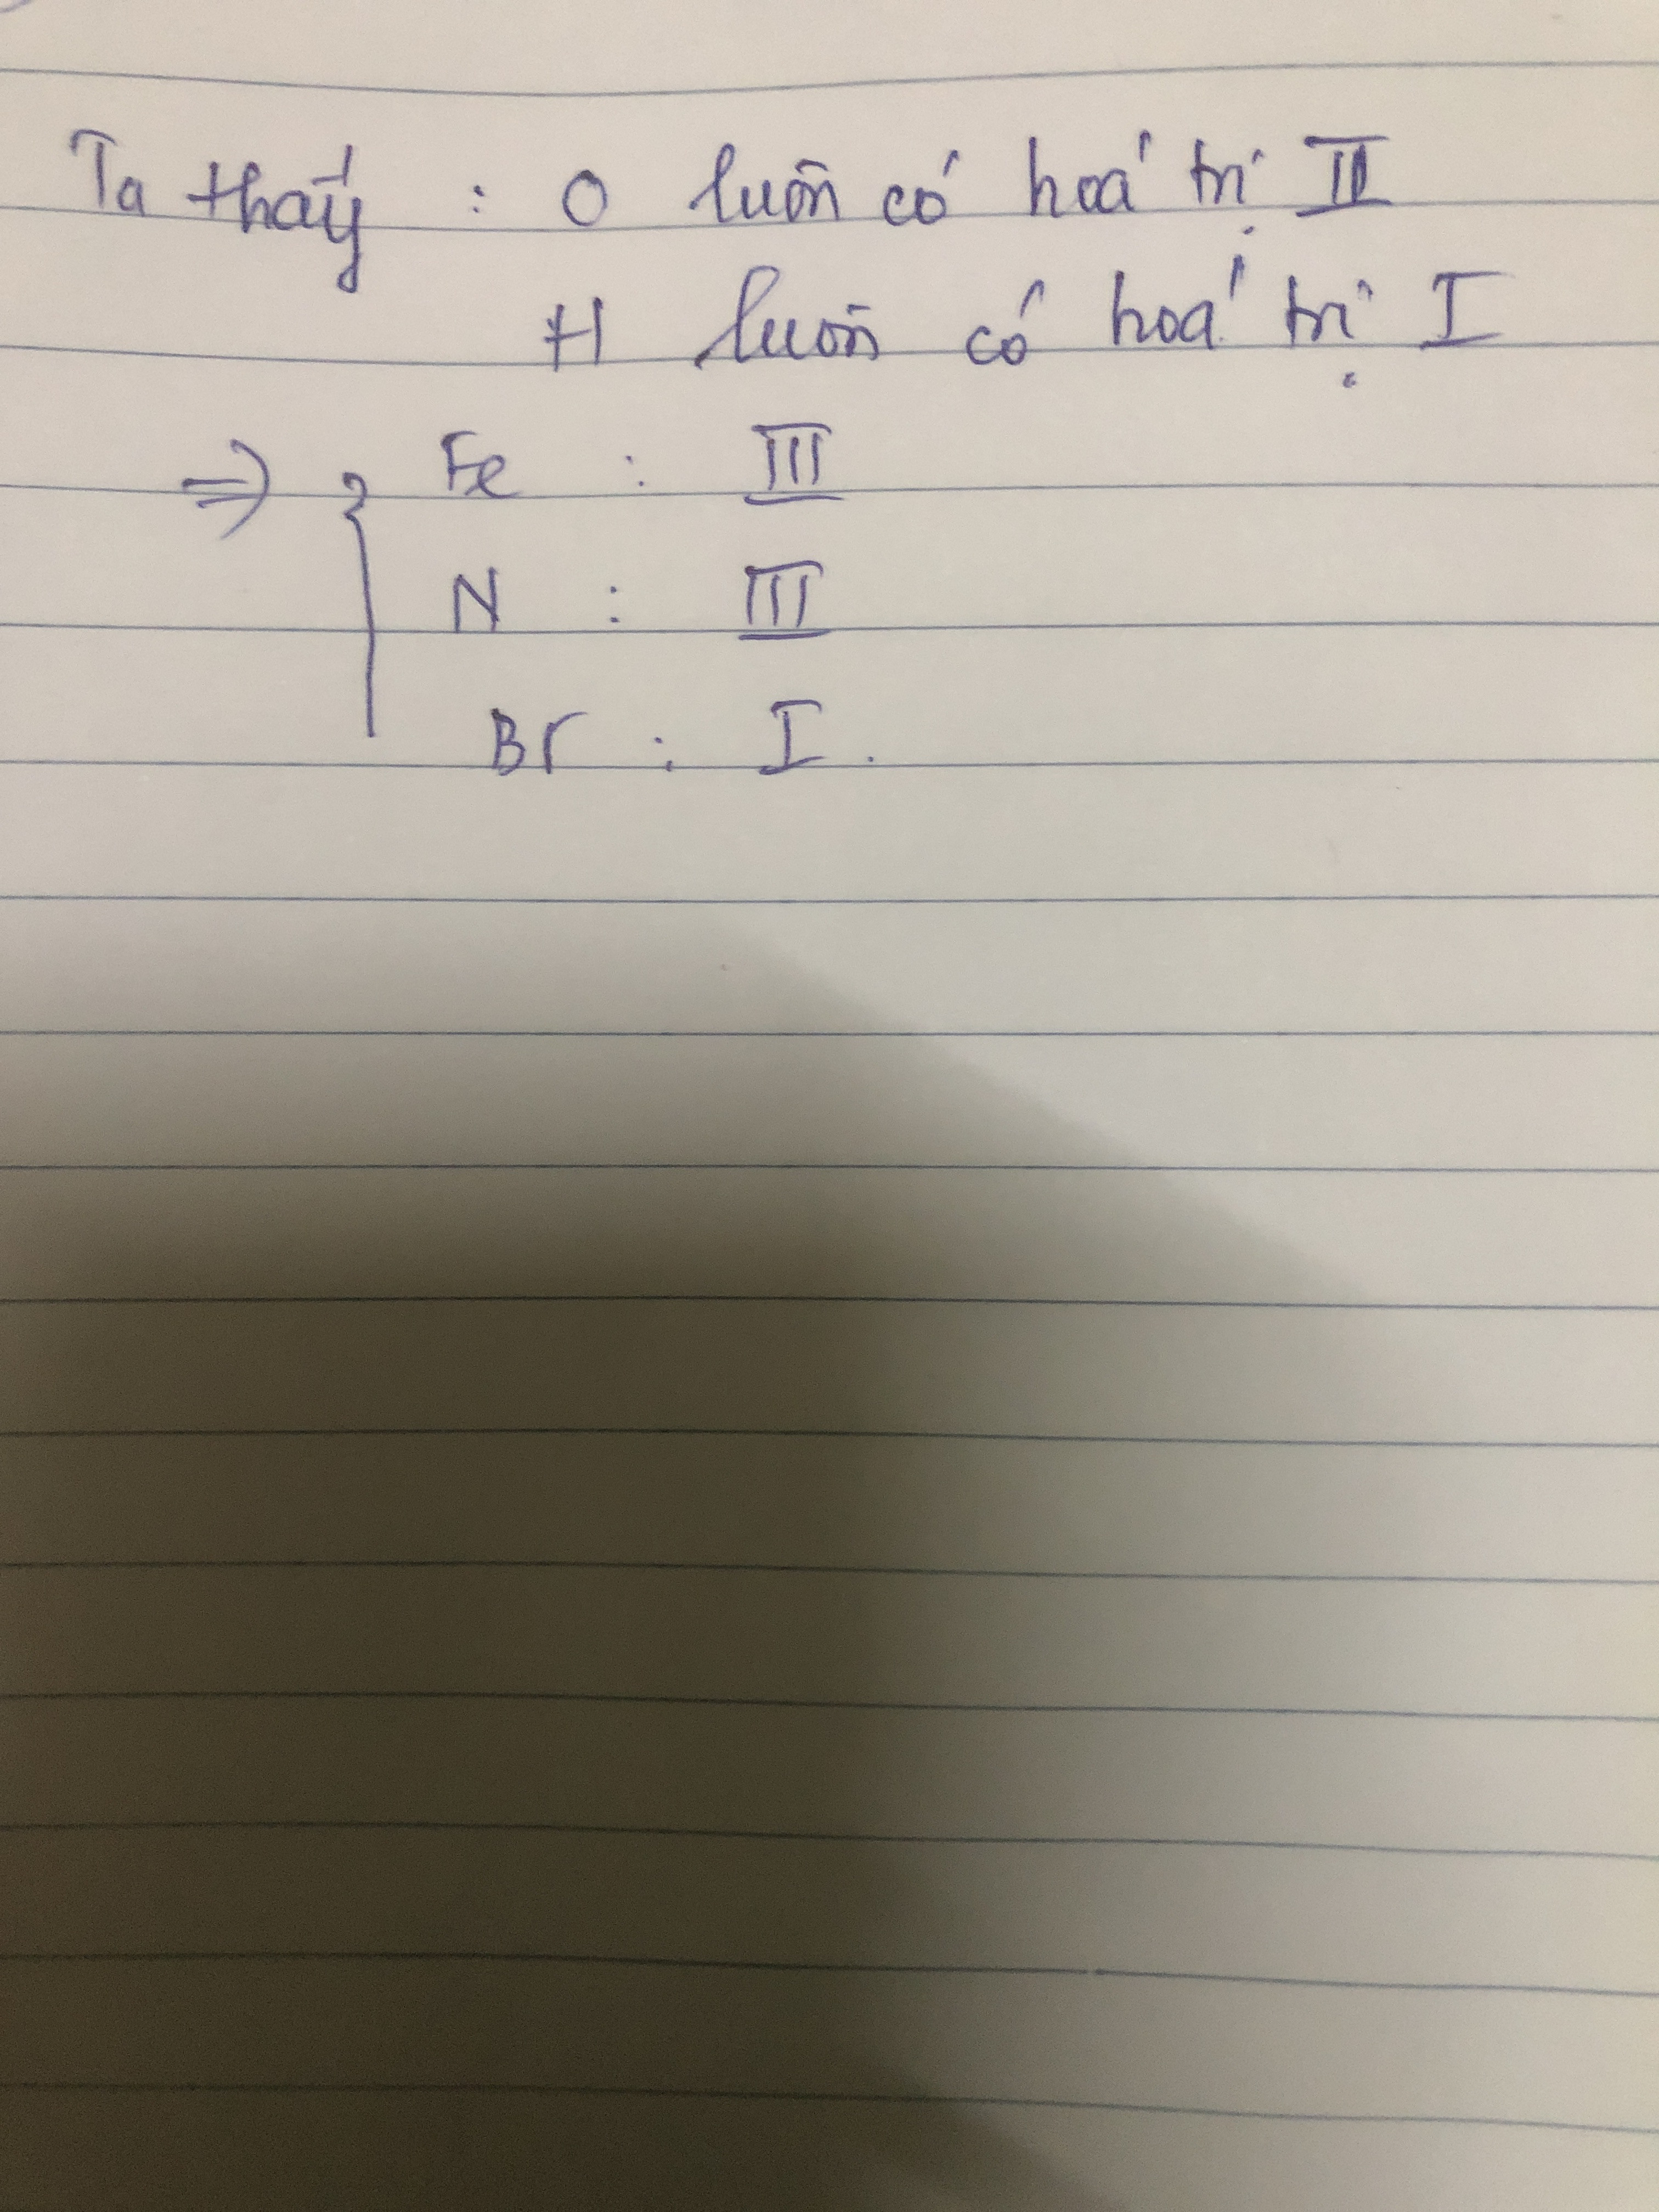 Ta thấy : O luôn có hoá trị II
H luôn có hoá trị I
=> { Fe : III
N : III
Br : I.